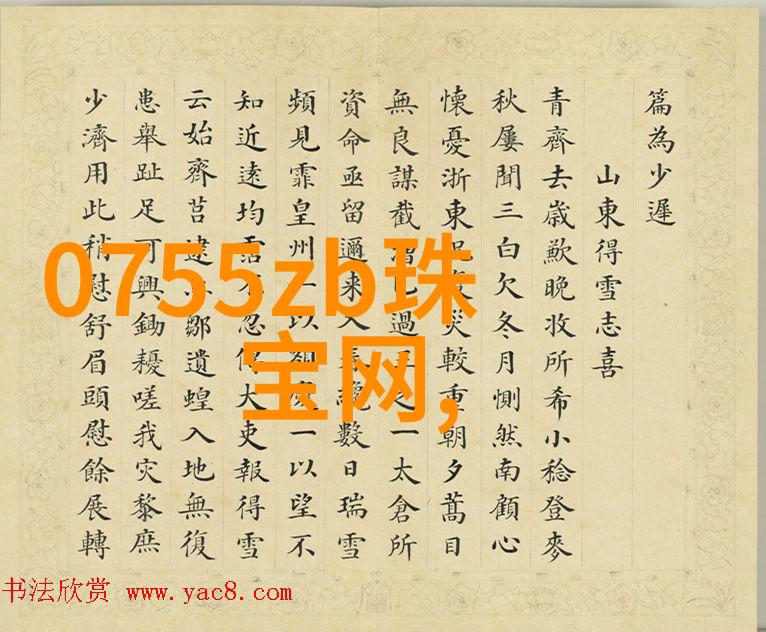 篇為少遲
山東得雪志喜
青齊去歲歉晚收所希小稔登麥
秋屢聞三白欠冬月惻然南顧心
懷憂浙東災較重朝夕蒿目
無良謀截過一太倉所
資命亟留邇来數日瑞雪
頻見霏皇州一以慶一以望不
知近遠均霑忽大吏報得雪
云始齊莒逮鄒遺蝗入地無復
患舉趾足可興鋤耰嗟我灾黎庶
少濟用此稍慰舒眉頭慰餘展轉
0755zb珠
宝网,
书法欣赏 www.yac8.com